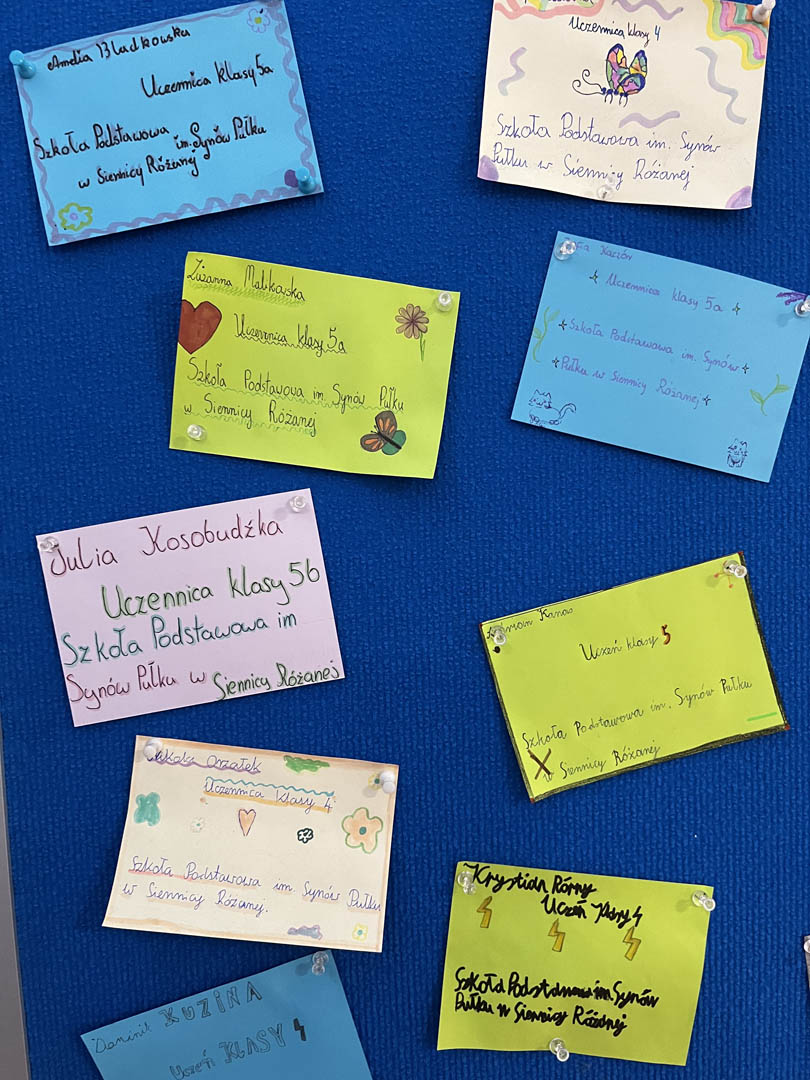 Amelia Bladkowska
Uczennica klasy 5a
Szkoła Podstawowa im. Synów Pułku
w Siennicy Różanej
Uczennica klasy 4
Szkoła Podstawowa im. Synów
Pułku w Siennicy Różanej
Zuzanna Malikowska
Uczennica klasy 5a
Szkoła Podstawowa im. Synów Pułku
w Siennicy Różanej
Kaczów
Uczennica klasy 5a
Szkoła Podstawowa im. Synów
Pułku w Siennicy Różanej
Julia Kosobudźka
Uczennica klasy 5b
Szkoła Podstawowa im
Synów Pułku w Siennicy Różanej
Kanas
Uczeń klasy 5
Szkoła Podstawowa im. Synów Pułku
w Siennicy Różanej
Orzałek
Uczennica klasy 4
Szkoła Podstawowa im. Synów Pułku
w Siennicy Różanej.
Krystian Rórny
Uczeń klasy 4
Szkoła Podstawowa im. Synów
Pułku w Siennicy Różanej
Dominik KUZINA
Uczeń KLASY 4